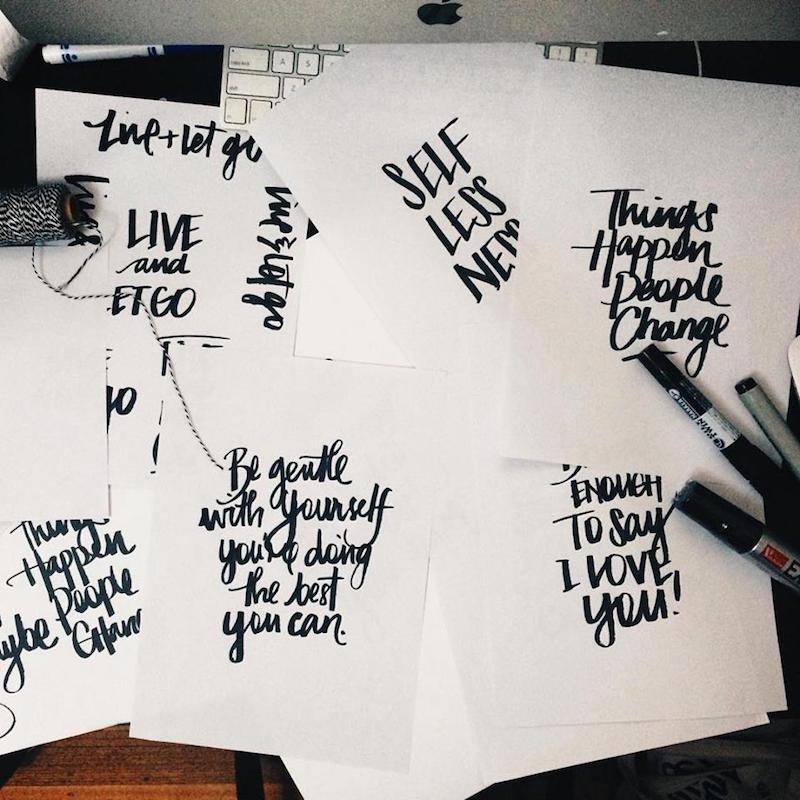 Live + let go
LIVE
and
ET GO
live & let go
go
SELF
LESS
NES
Things
Happen
People
Change
Be gentle
with yourself
you're doing
the best
you can.
ENOUGH
TO Say
I LOVE
YOU!
Things
Happen
People
Chan
TWIN
A
S